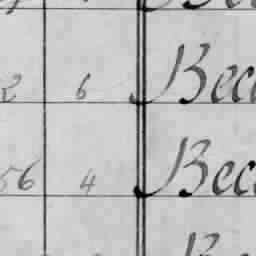 2 6 Bec
56 4 Bec